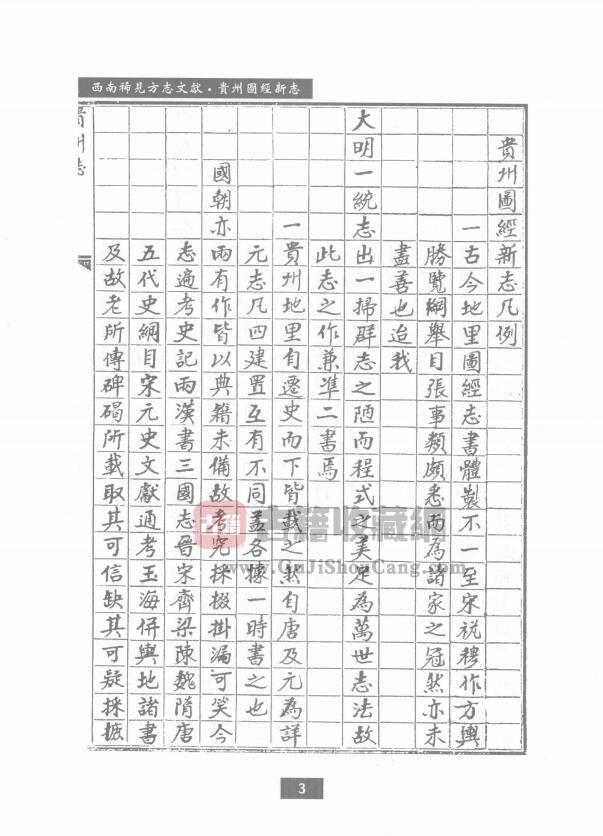 西南稀見方志文獻·貴州圖經新志
貴州圖經新志凡例
一古今地里圖經志書體製不一至宋祝穆作方輿
勝覽綱舉目張事類頗悉而為諸家之冠然亦未
盡善也迨我
大明一統志出一掃群志之陋而程式之美足為萬世志法故
此志之作兼準二書焉
一貴州地里自遷史而下皆載之然自唐及元為詳
元志凡四建置互有不同葢各據一時書之也
國朝亦兩有作皆以典籍未備故考究採掇掛漏可笑今
志遍考史記兩漢書三國志晉宋齊梁陳魏隋唐
五代史綱目宋元史文獻通考玉海併輿地諸書
及故老所傳碑碣所載取其可信缺其可疑採摭
貴州志
古籍收藏網
www.GuJiShouCang.com
3